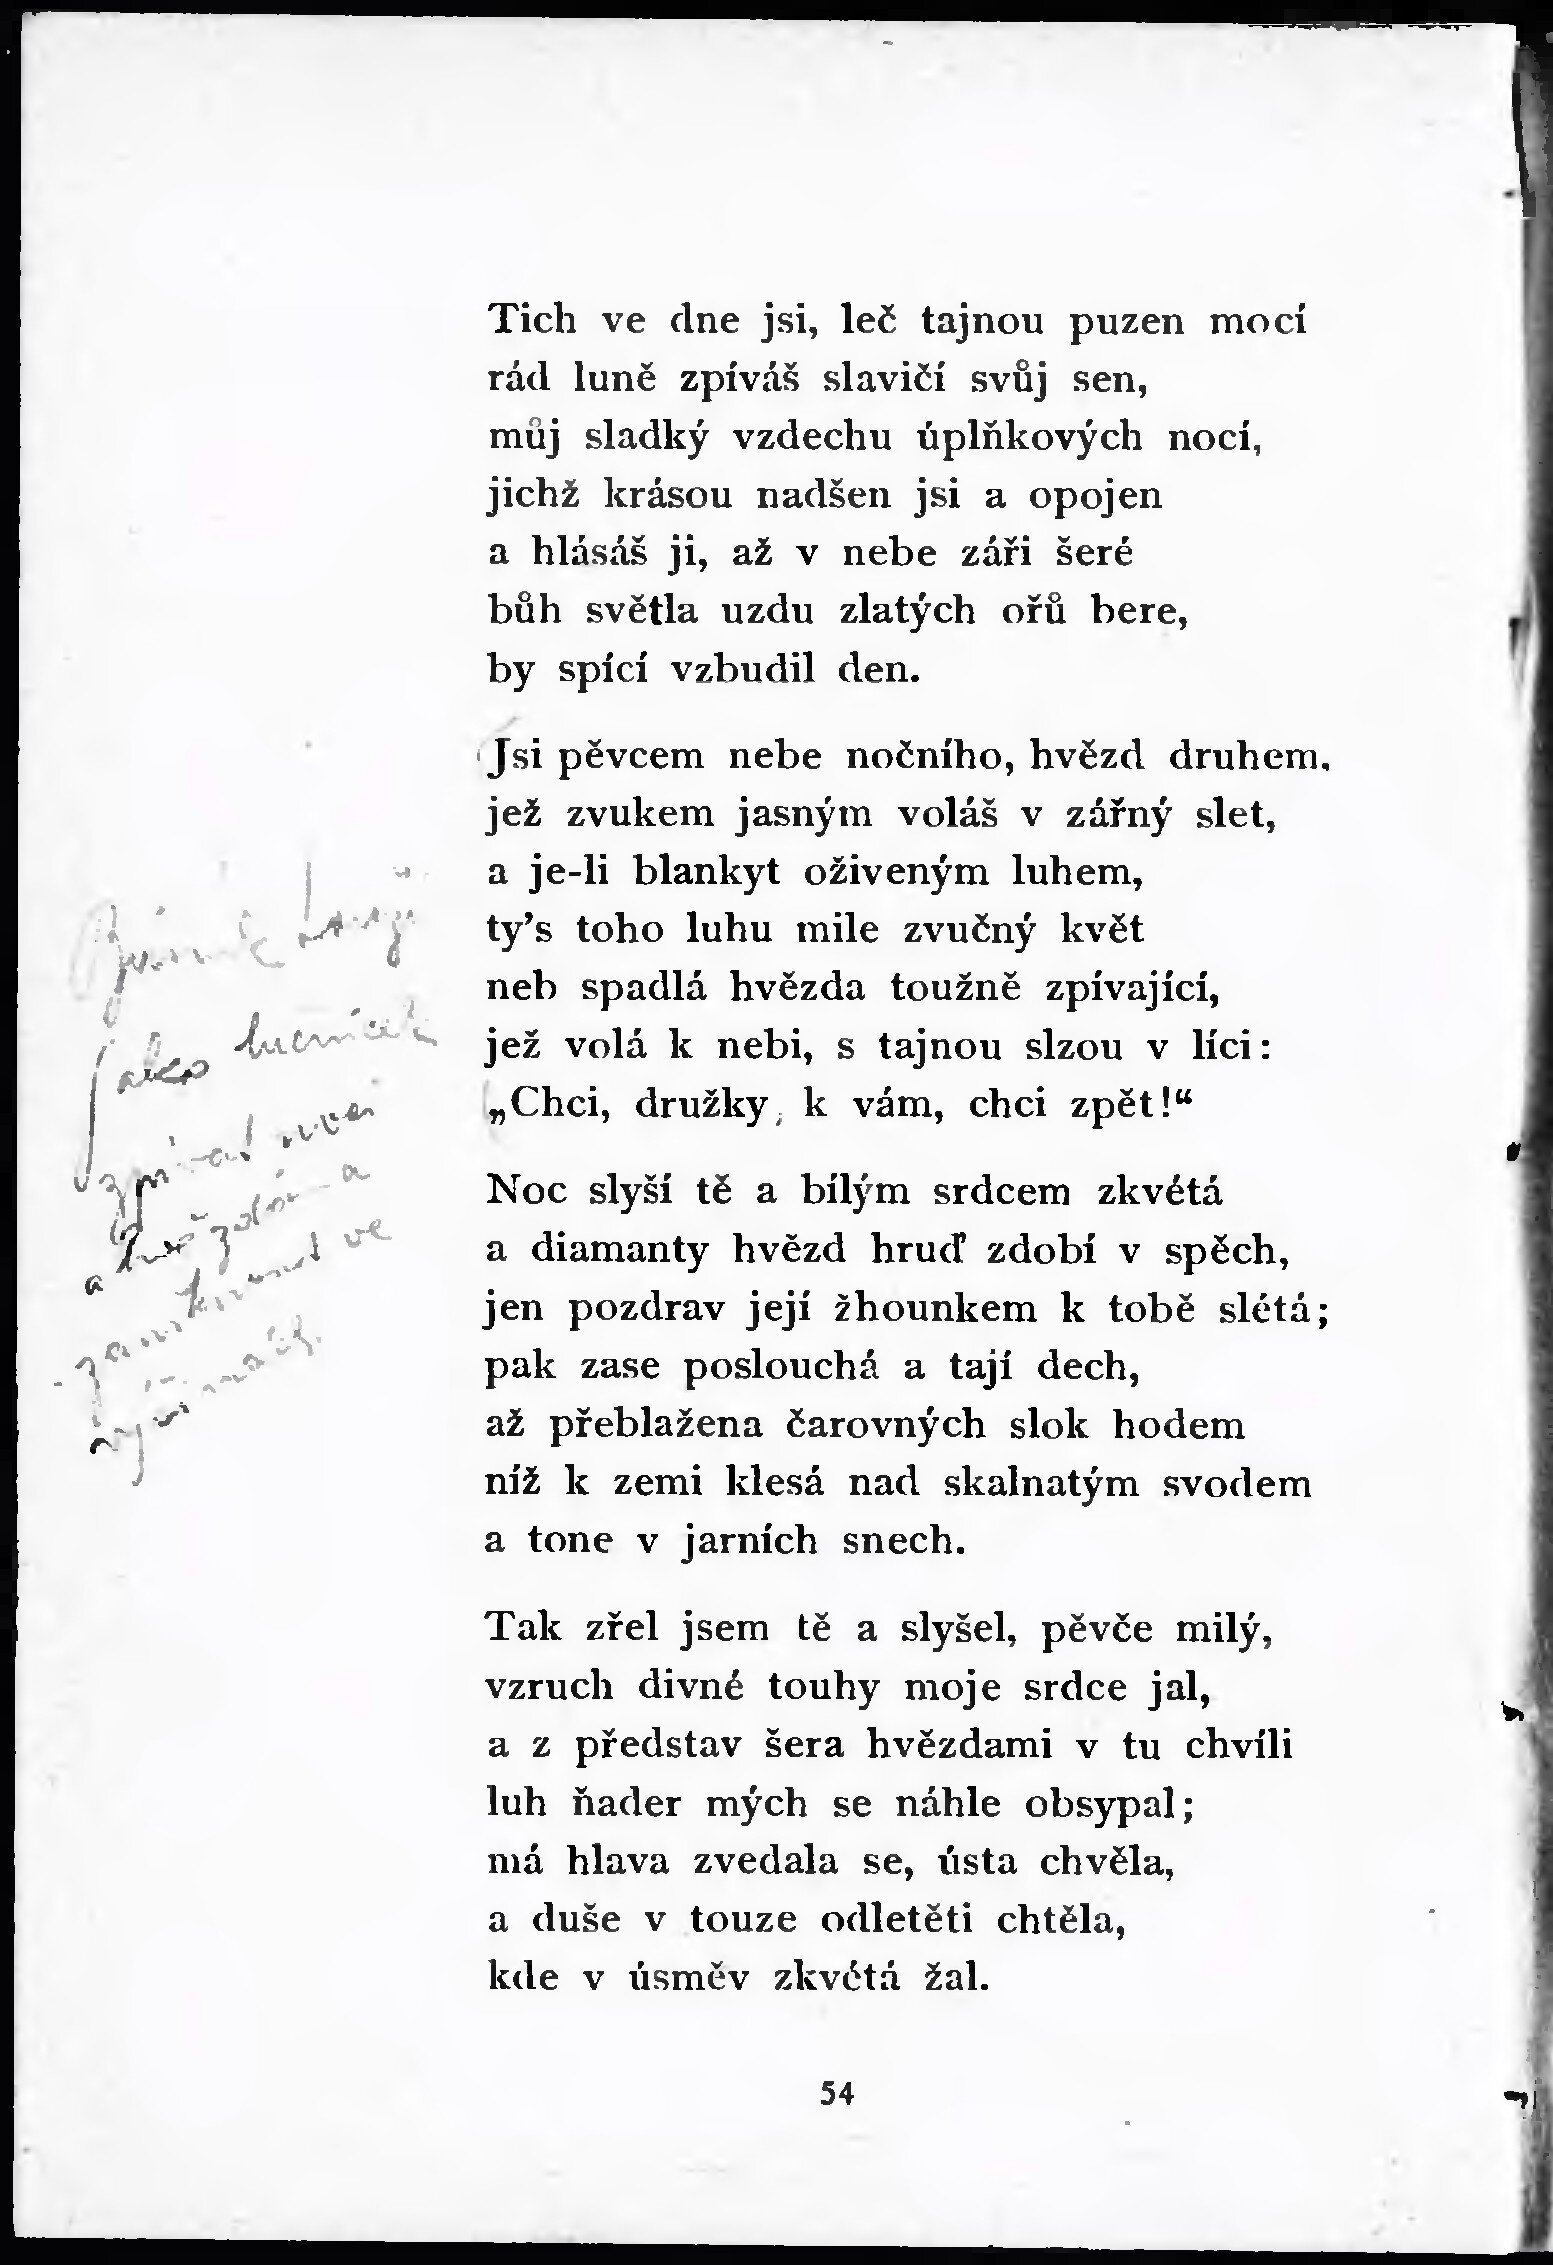 Tich ve dne jsi, leč tajnou puzen mocí
rád luně zpíváš slavičí svůj sen,
můj sladký vzdechu úplňkových nocí,
jichž krásou nadšen jsi a opojen
a hlásáš ji, až v nebe záři šeré
bůh světla uzdu zlatých ořů bere,
by spící vzbudil den.
Jsi pěvcem nebe nočního, hvězd druhem,
jež zvukem jasným voláš v zářný slet,
a je-li blankyt oživeným luhem,
ty’s toho luhu mile zvučný květ
neb spadlá hvězda toužně zpívající,
jež volá k nebi, s tajnou slzou v líci:
„Chci, družky, k vám, chci zpět!“
Noc slyší tě a bílým srdcem zkvétá
a diamanty hvězd hruď zdobí v spěch,
jen pozdrav její žhounkem k tobě slétá;
pak zase poslouchá a tají dech,
až přeblažena čarovných slok hodem
níž k zemi klesá nad skalnatým svodem
a tone v jarních snech.
Tak zřel jsem tě a slyšel, pěvče milý,
vzruch divné touhy moje srdce jal,
a z představ šera hvězdami v tu chvíli
luh ňader mých se náhle obsypal;
má hlava zvedala se, ústa chvěla,
a duše v touze odletěti chtěla,
kde v úsměv zkvétá žal.
jako
a
ve
54